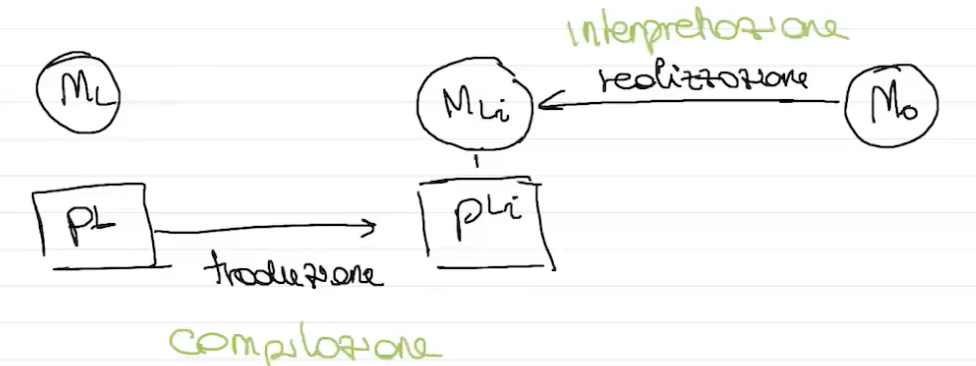 interpretazione
realizzazione
M_L
M_Li
M_0
P^L
P^Li
traduzione
compilazione